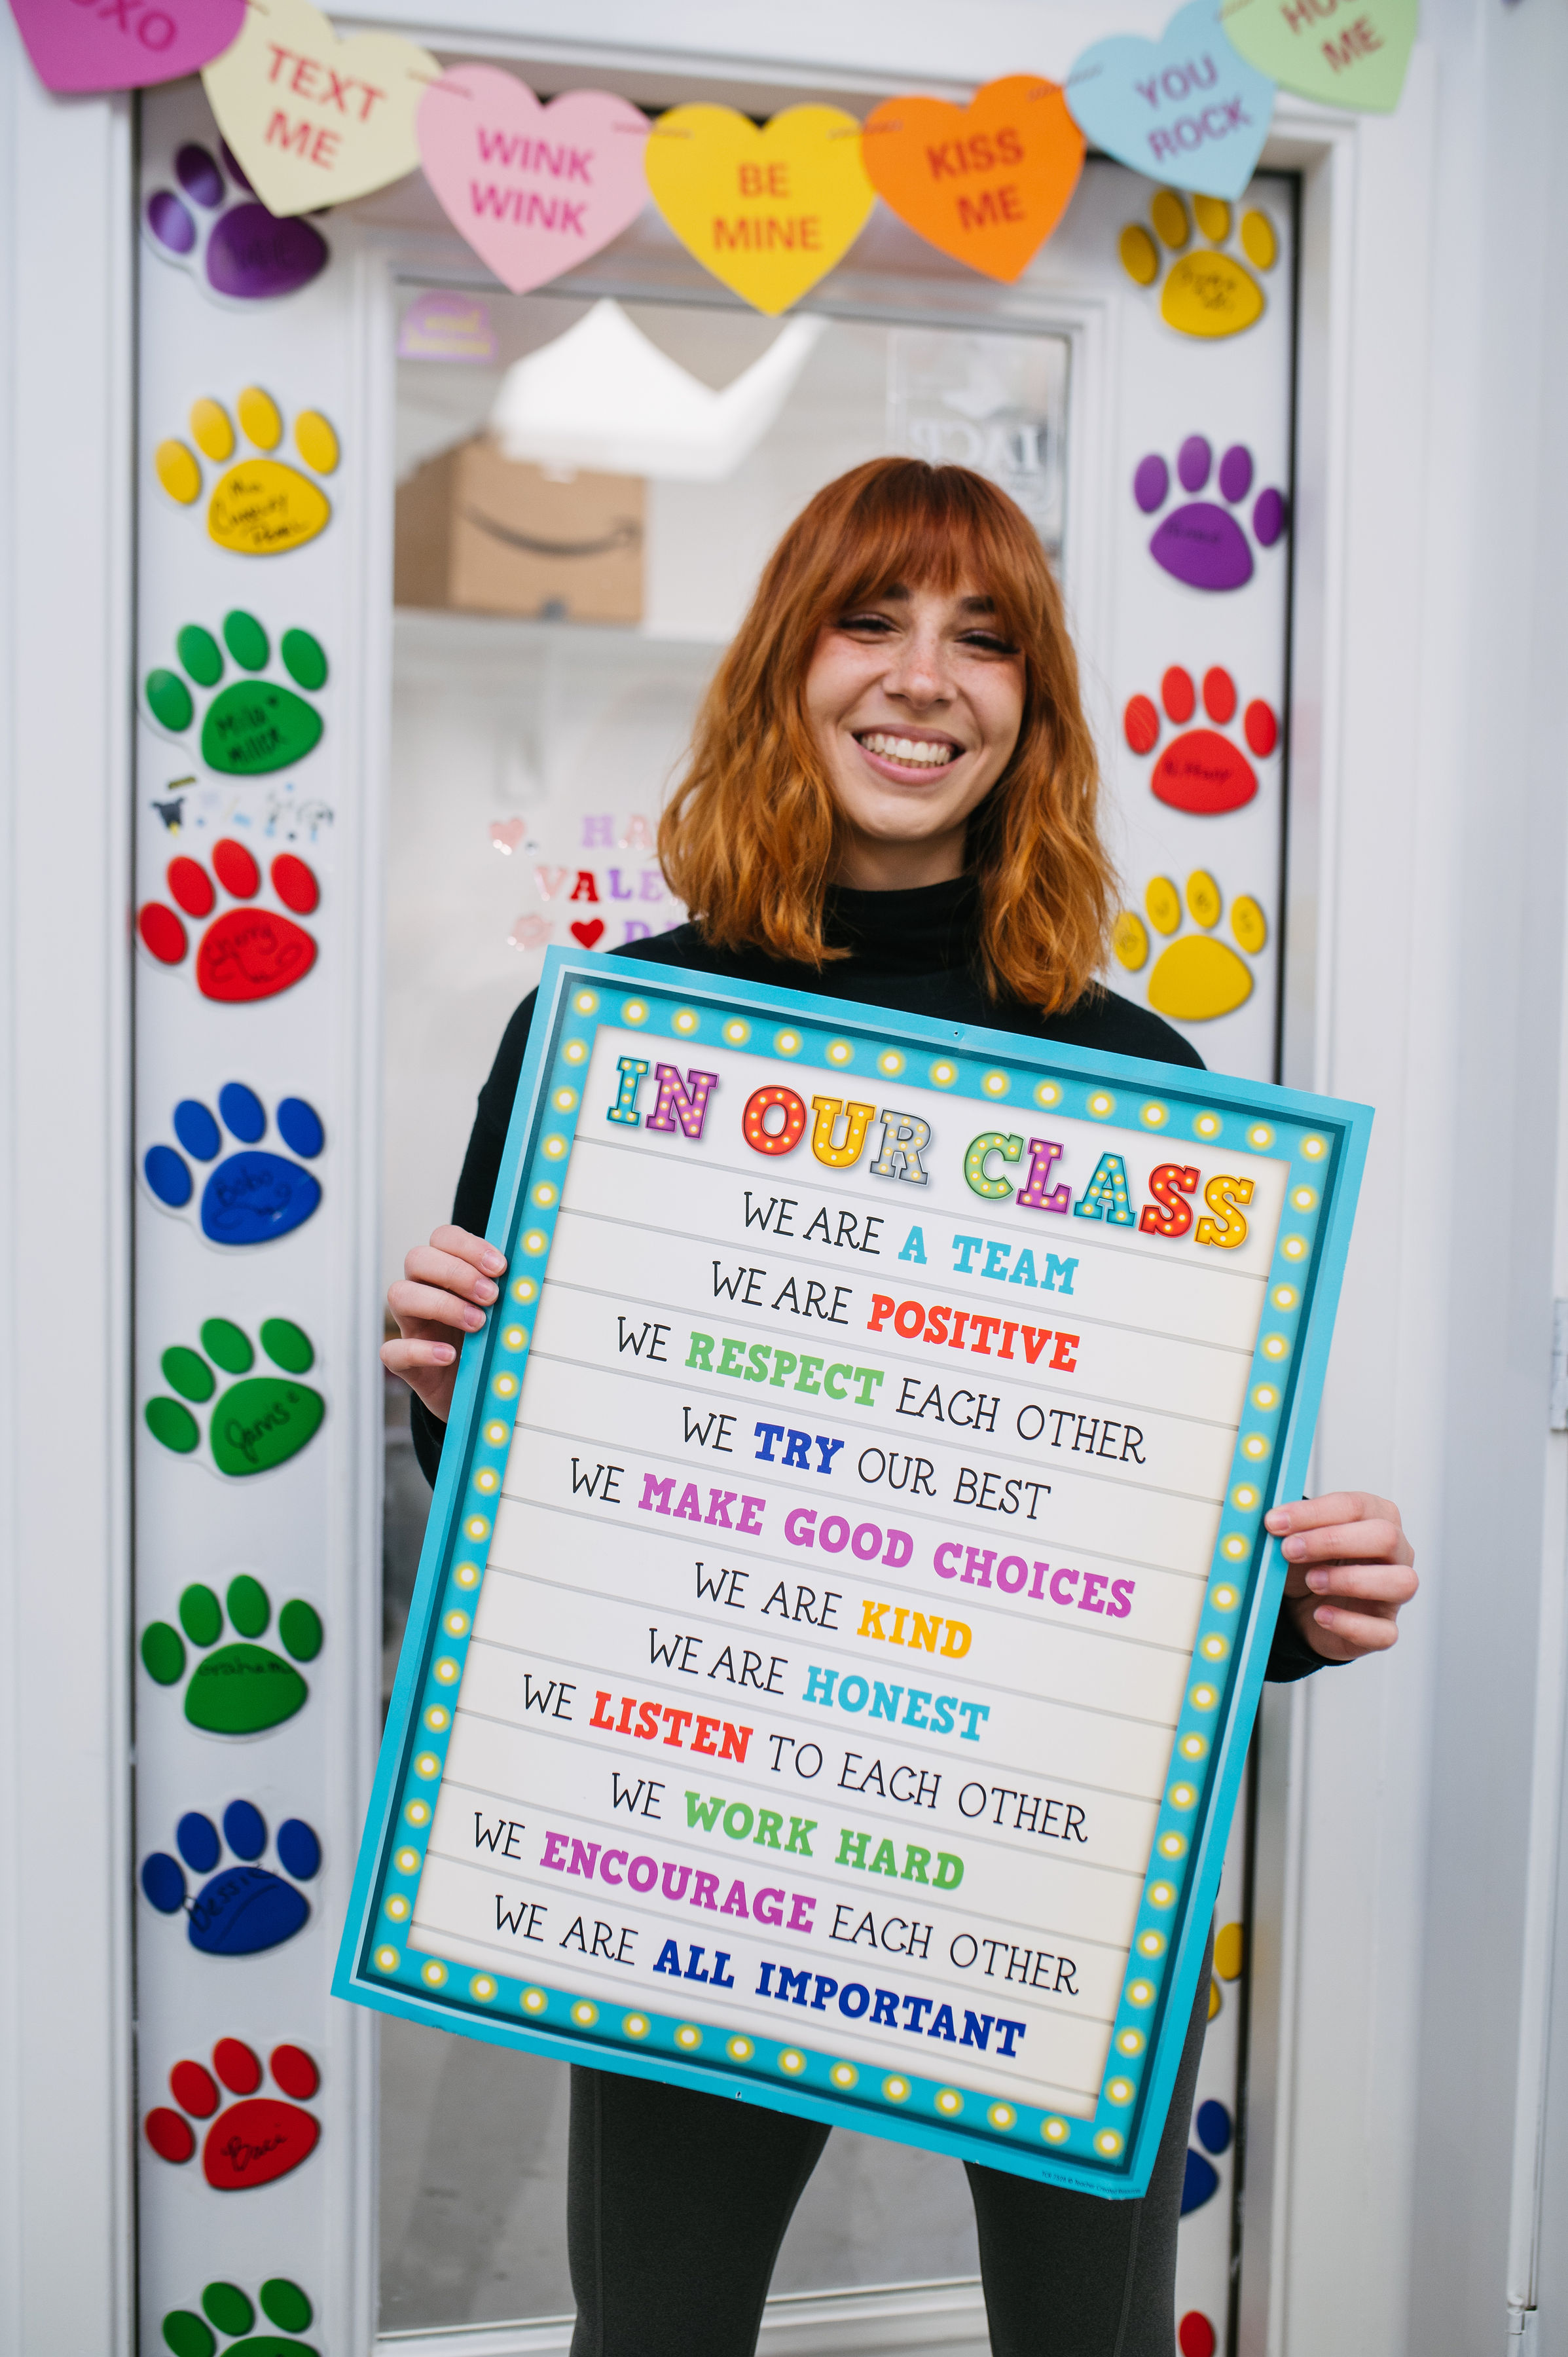 XOXO
TEXT
ME
WINK
WINK
BE
MINE
KISS
ME
YOU
ROCK
ME
IACP
Milo
MILLER
VALE
Bobo
Jarvis
Graham
Bessie
IN OUR CLASS
WE ARE A TEAM
WE ARE POSITIVE
WE RESPECT EACH OTHER
WE TRY OUR BEST
WE MAKE GOOD CHOICES
WE ARE KIND
WE ARE HONEST
WE LISTEN TO EACH OTHER
WE WORK HARD
WE ENCOURAGE EACH OTHER
WE ARE ALL IMPORTANT